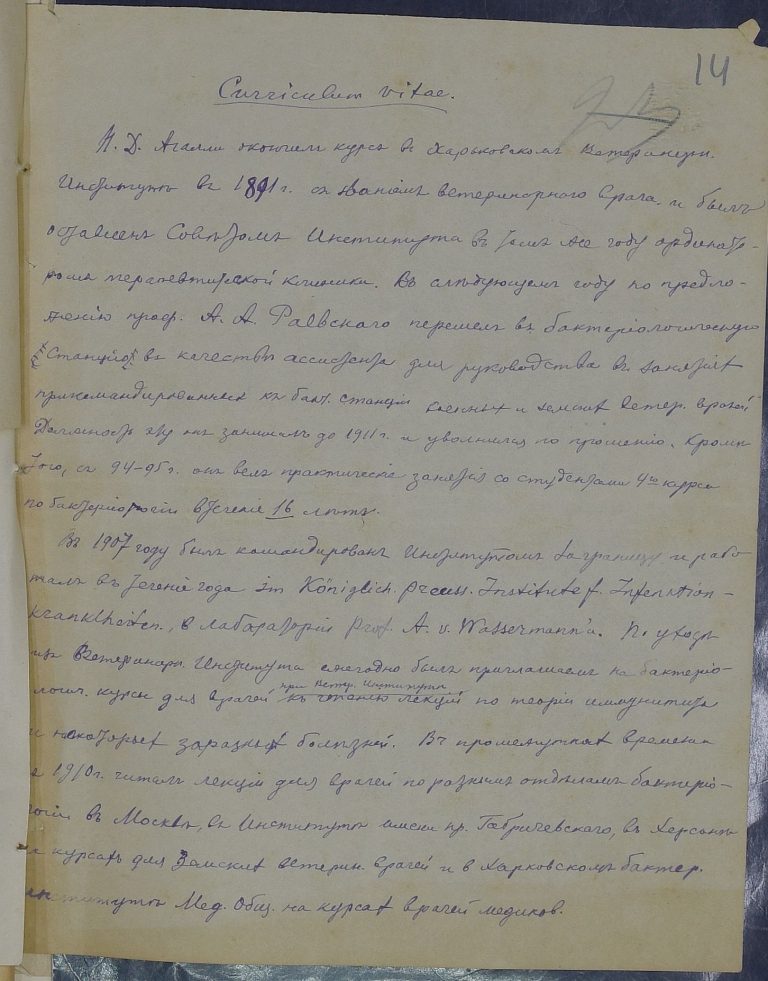 14
Curriculum vitae.
Н. Д. Агалли окончил курс в Харьковском Ветеринарн.
Институтѣ въ 1891 г. съ званіемъ ветеринарного врача и былъ
оставленъ Совѣтомъ Института въ томъ же году ординато-
ромъ терапевтической клиники. Въ слѣдующемъ году по предло-
женію проф. А. А. Раевского перешелъ въ бактеріологическую
станцію въ качествѣ ассистента для руководства въ занятіях
прикомандированныхъ къ бакт. станціи военных и земских ветер. врачей
Должность эту онъ занималъ до 1911 г. и уволился по прошенію. Кромѣ
того, съ 94-95 г. онъ велъ практическіе занятія со студентами 4го курса
по бактеріологіи втеченіе 16 лѣтъ.
Въ 1907 году былъ командированъ Институтомъ заграницу и рабо
талъ въ теченіе года im Königlich. Preuss. Institute f. Infektion-
krankheiten, в лабараторіи Prof. A. v. Wassermann'а. По уходѣ
изъ Ветеринарн. Института ежегодно былъ приглашаем на бактеріо-
логич. курсы для врачей при Ветер. Институтѣ къ чтенію лекцій по теоріи иммунитета
и нѣкоторых заразных болѣзней. Въ промежутках времени
1910 г. читалъ лекціи для врачей по разнымъ отдѣламъ бактеріо-
логіи въ Москвѣ, въ Институтѣ имени пр. Габричевского, въ Херсонѣ
курсахъ для Земских ветерин. врачей и в Харковскомъ бактер.
институтѣ Мед. Общ. на курсах врачей медиков.